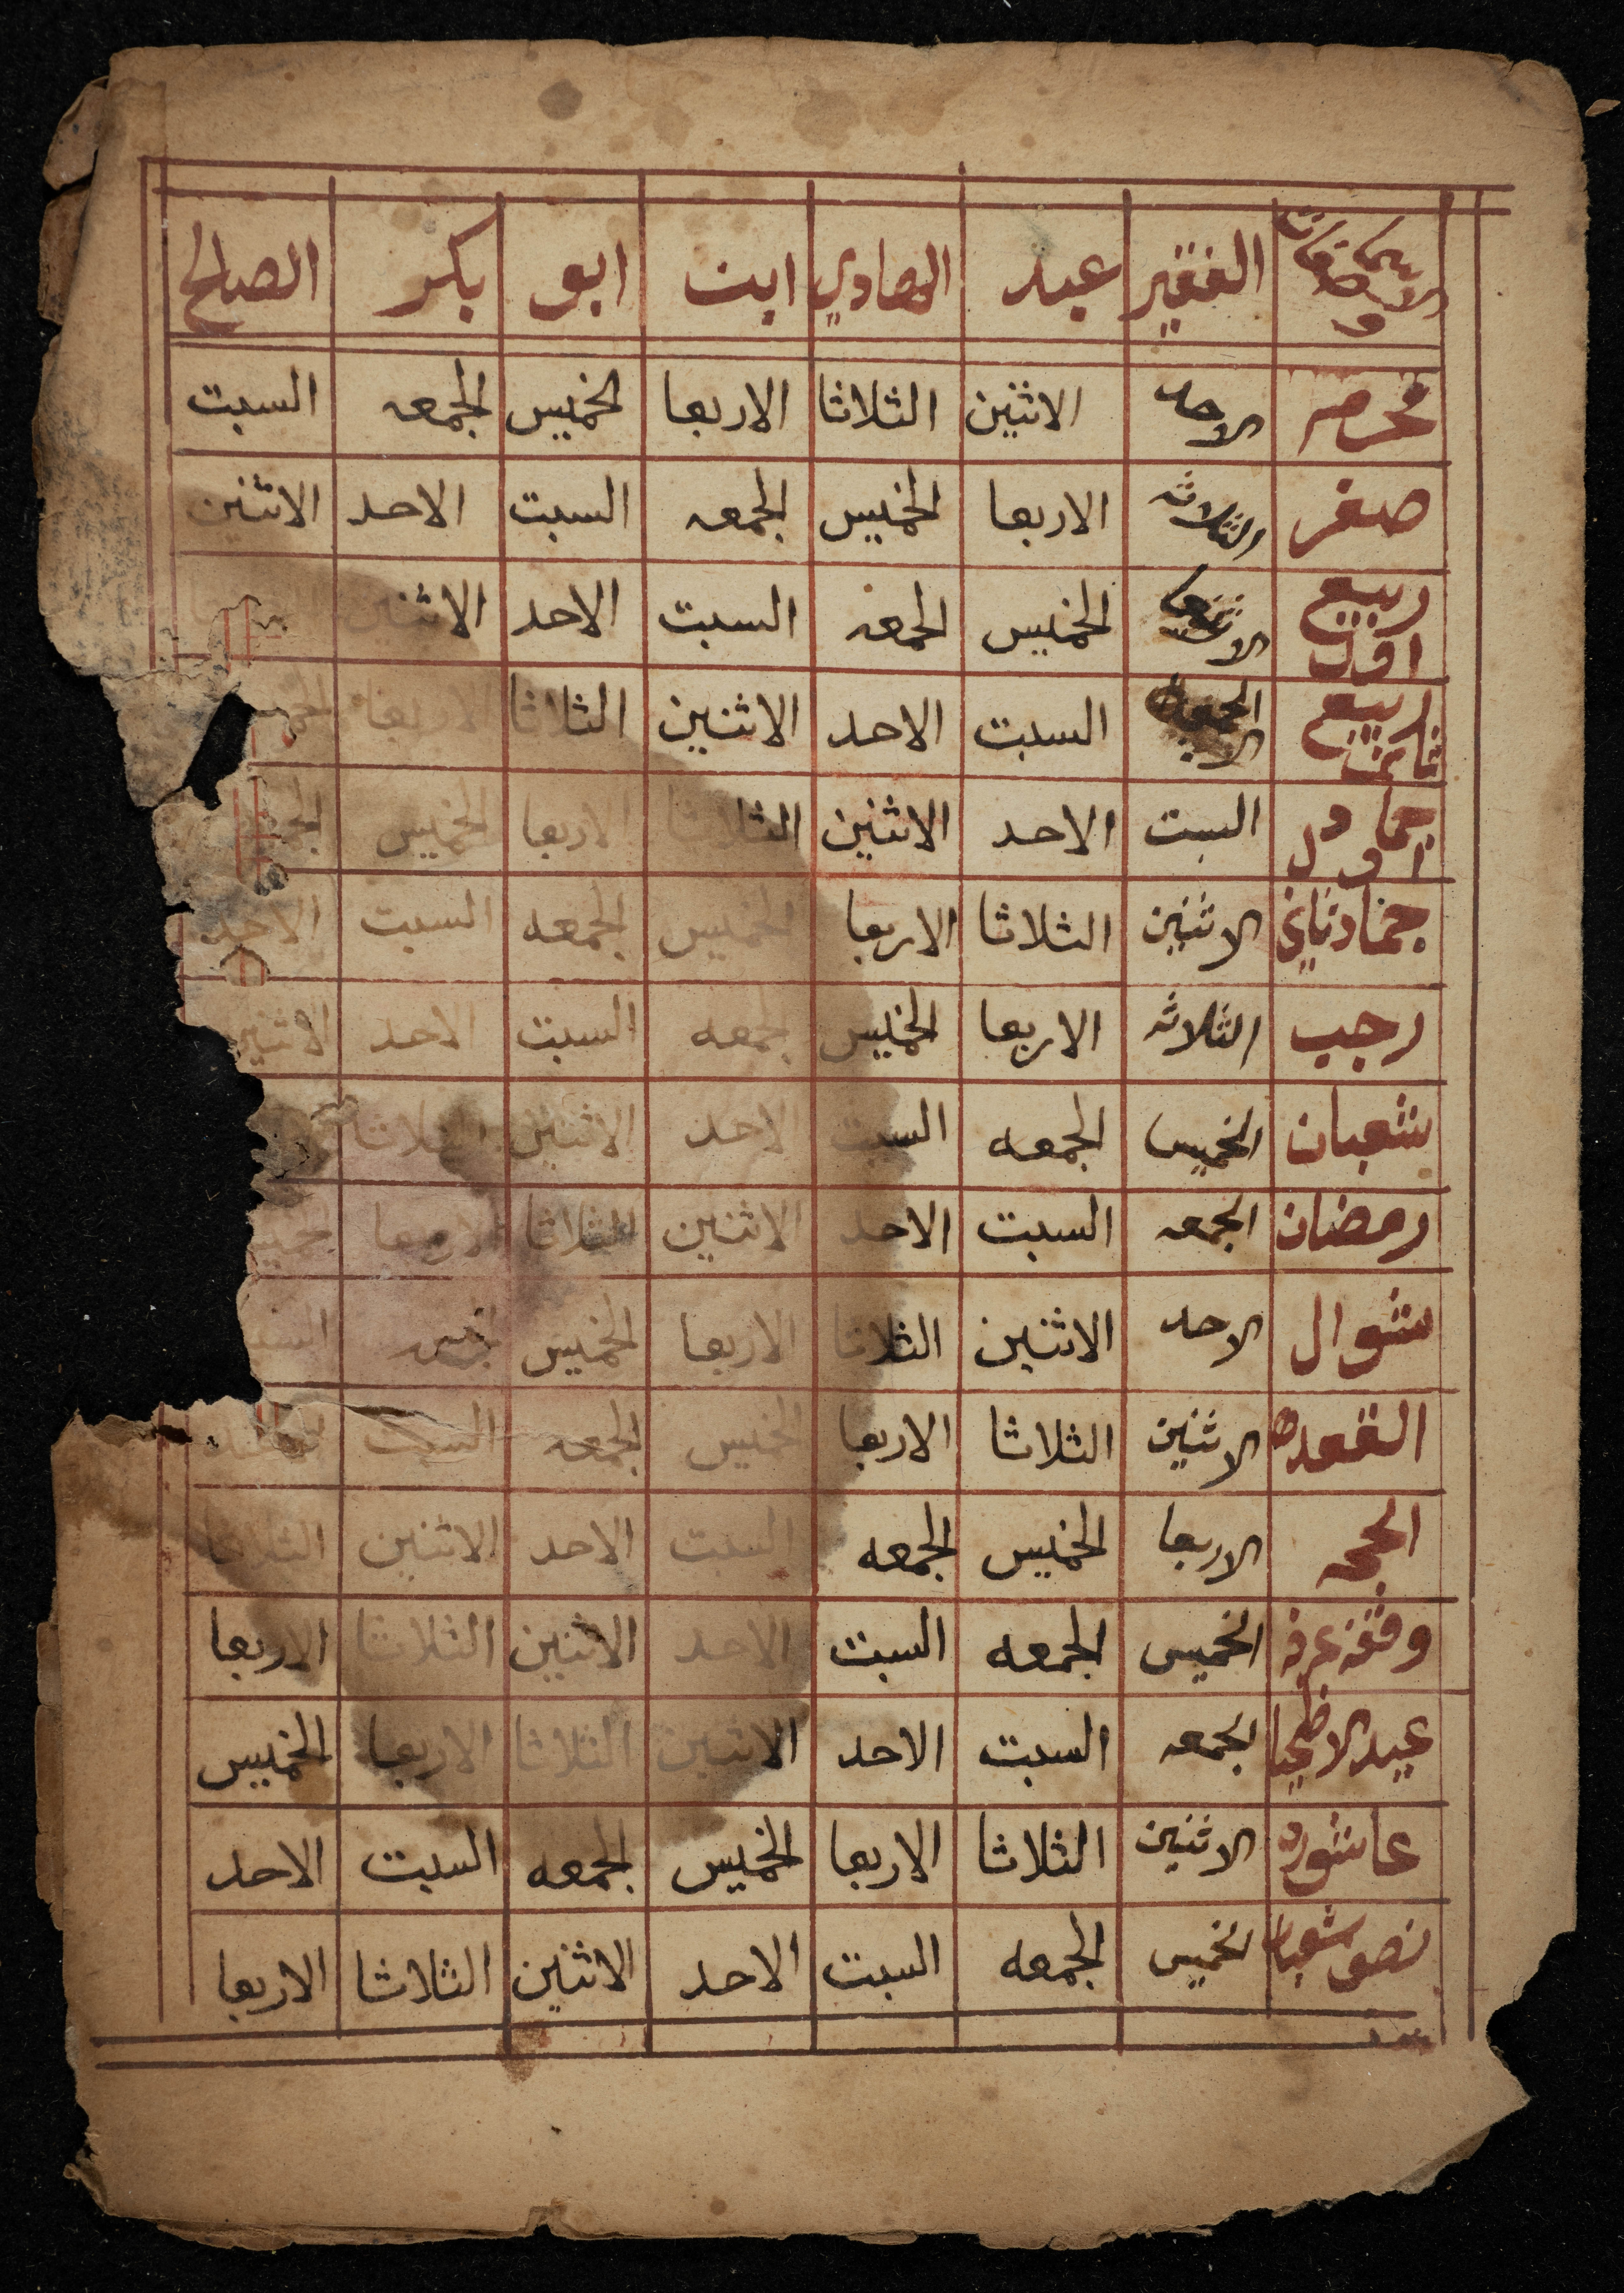 الفقير عبد الهادي ابن ابو بكر الصالح
محرم الاحد الاثنين الثلاثا الاربعا الخميس الجمعه السبت
صفر الثلاثه الاربعا الخميس الجمعه السبت الاحد الاثنين
ربيع اول الخميس الجمعه السبت الاحد الاثنين
ربيع ثاني السبت الاحد الاثنين الثلاثا الاربعا
جماد اول السبت الاحد الاثنين الثلاثا الاربعا الخميس
جماد ثاني الاثنين الثلاثا الاربعا الخميس الجمعه السبت الاحد
رجب الثلاثه الاربعا الخميس لجمعه السبت الاحد الاثنين
شعبان الخميس الجمعه السبت الاحد الاثنين الثلاثا
رمضان الجمعه السبت الاحد الاثنين الثلاثا الاربعا
شوال الاحد الاثنين الثلاثا الاربعا الخميس
القعده الاثنين الثلاثا الاربعا الخميس الجمعه السبت
الحجه الاربعا الخميس الجمعه السبت الاحد الاثنين الثلاثا
وقفة عرفه الخميس الجمعه السبت الاحد الاثنين الثلاثا الاربعا
عيد الاضحيا الجمعه السبت الاحد الاثنين الثلاثا الاربعا الخميس
عاشوره الاثنين الثلاثا الاربعا الخميس الجمعه السبت الاحد
نصف شعبان الخميس الجمعه السبت الاحد الاثنين الثلاثا الاربعا